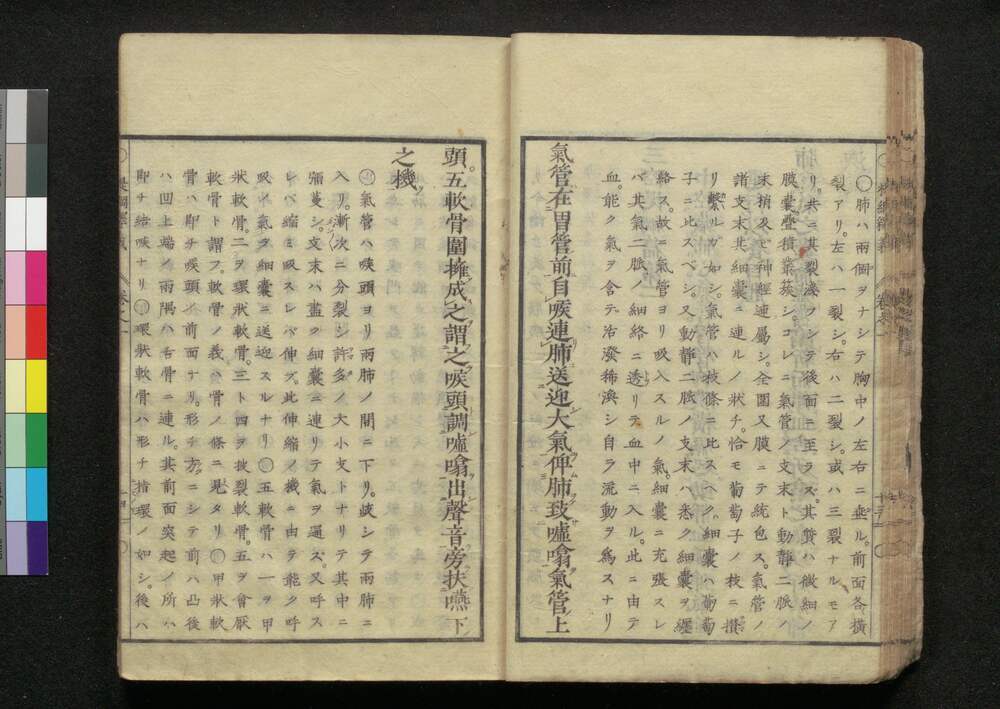 〇肺ハ兩個ヲナシテ胸中ノ左右ニ垂ル。前面各横
裂アリ。左ハ一裂シ。右ハ二裂シ。或ハ三裂ナルモア
リ。共ニ其裂湊フシテ後面ニ至ラス。其質ハ微細ノ
膜囊疊積叢簇シ。コレニ氣管ノ支末ト動靜二脈ノ
末梢及ヒ神經連屬シ。全圍又膜ニテ統包ス。氣管ノ
諸支末其細囊ニ連ルノ狀チ。恰モ葡萄子ノ枝ニ攢
リ繫ルガ如シ。氣管ハ枝條ニ比スベク。細囊ハ葡萄
子ニ比スベシ。又動靜二脈ノ支末ハ悉ク細囊ヲ纏
絡ス。故ニ氣管ヨリ吸入スルノ氣。細囊ニ充張スレ
バ其氣二脈ノ細絡ニ透リテ血中ニ入ル。此ニ由テ
血。能ク氣ヲ含テ活潑稀澳シ自ラ流動ヲ爲スナリ
氣管在胃管前自喉連肺送迎大氣俾肺玻嘘噏氣管上
頭。五軟骨圍擁成之謂之喉頭調嘘噏出聲音旁扶嚥下
之機
氣管ハ喉頭ヨリ兩肺ノ間ニ下リ。岐シテ兩肺ニ
入リ。漸次ニ分裂シ許多ノ大小支トナリテ其中ニ
彌蔓シ。支末ハ盡ク細囊ニ連リテ氣ヲ逼ス。又呼ス
レバ縮ミ吸スレバ伸ブ。此伸縮ノ機ニ由テ能ク呼
吸ノ氣ヲ細囊ニ送迎スルナリ〇五軟骨ハ一ヲ甲
狀軟骨。二ヲ環狀軟骨。三ト四ヲ披裂軟骨。五ヲ會厭
軟骨ト謂フ。軟骨ノ義ハ骨ノ條ニ見タリ〇甲狀軟
骨ハ即チ喉頭ノ前面ナリ。形チ方ニシテ前ハ凸後
ハ凹上端ノ兩隅ハ舌骨ニ連ル。其前面突起ノ所ハ
即チ結喉ナリ〇環狀軟骨ハ形チ指環ノ如シ。後ハ